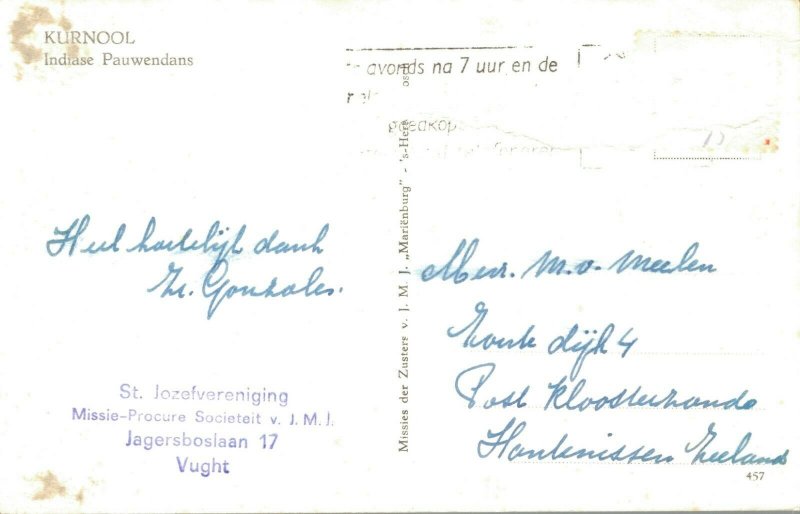 KURNOOL
Indiase Pauwendans
avonds na 7 uur en de
goedkop
Heel hartelijk dank
Zr. Gonzales.
St. Jozefvereniging
Missie-Procure Societeit v. J.M.J.
Jagersboslaan 17
Vught
Missies der Zusters v. J. M. J. „Mariënburg" - 's-Hert osc
Mevr. M. v. Meelen
Zoute dijk 4
Post Kloosterzande
Hontenissen Zeeland
457